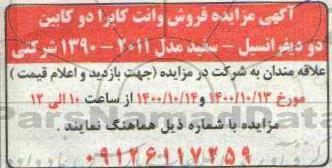 آگهی مزایده فروش وانت کاپرا دو کابین
دو دیفرانسیل - سفید مدل ۲۰۱۱ - ۱۳۹۰ شرکتی
علاقه مندان به شرکت در مزایده (جهت بازدید و اعلام قیمت)
مورخ ۱۴۰۰/۱۰/۱۳ و ۱۴۰۰/۱۰/۱۴ از ساعت ۱۰ الی ۱۲
مزایده با شماره ذیل هماهنگ نمایند.
۰۹۱۲۶۱۱۷۲۵۹